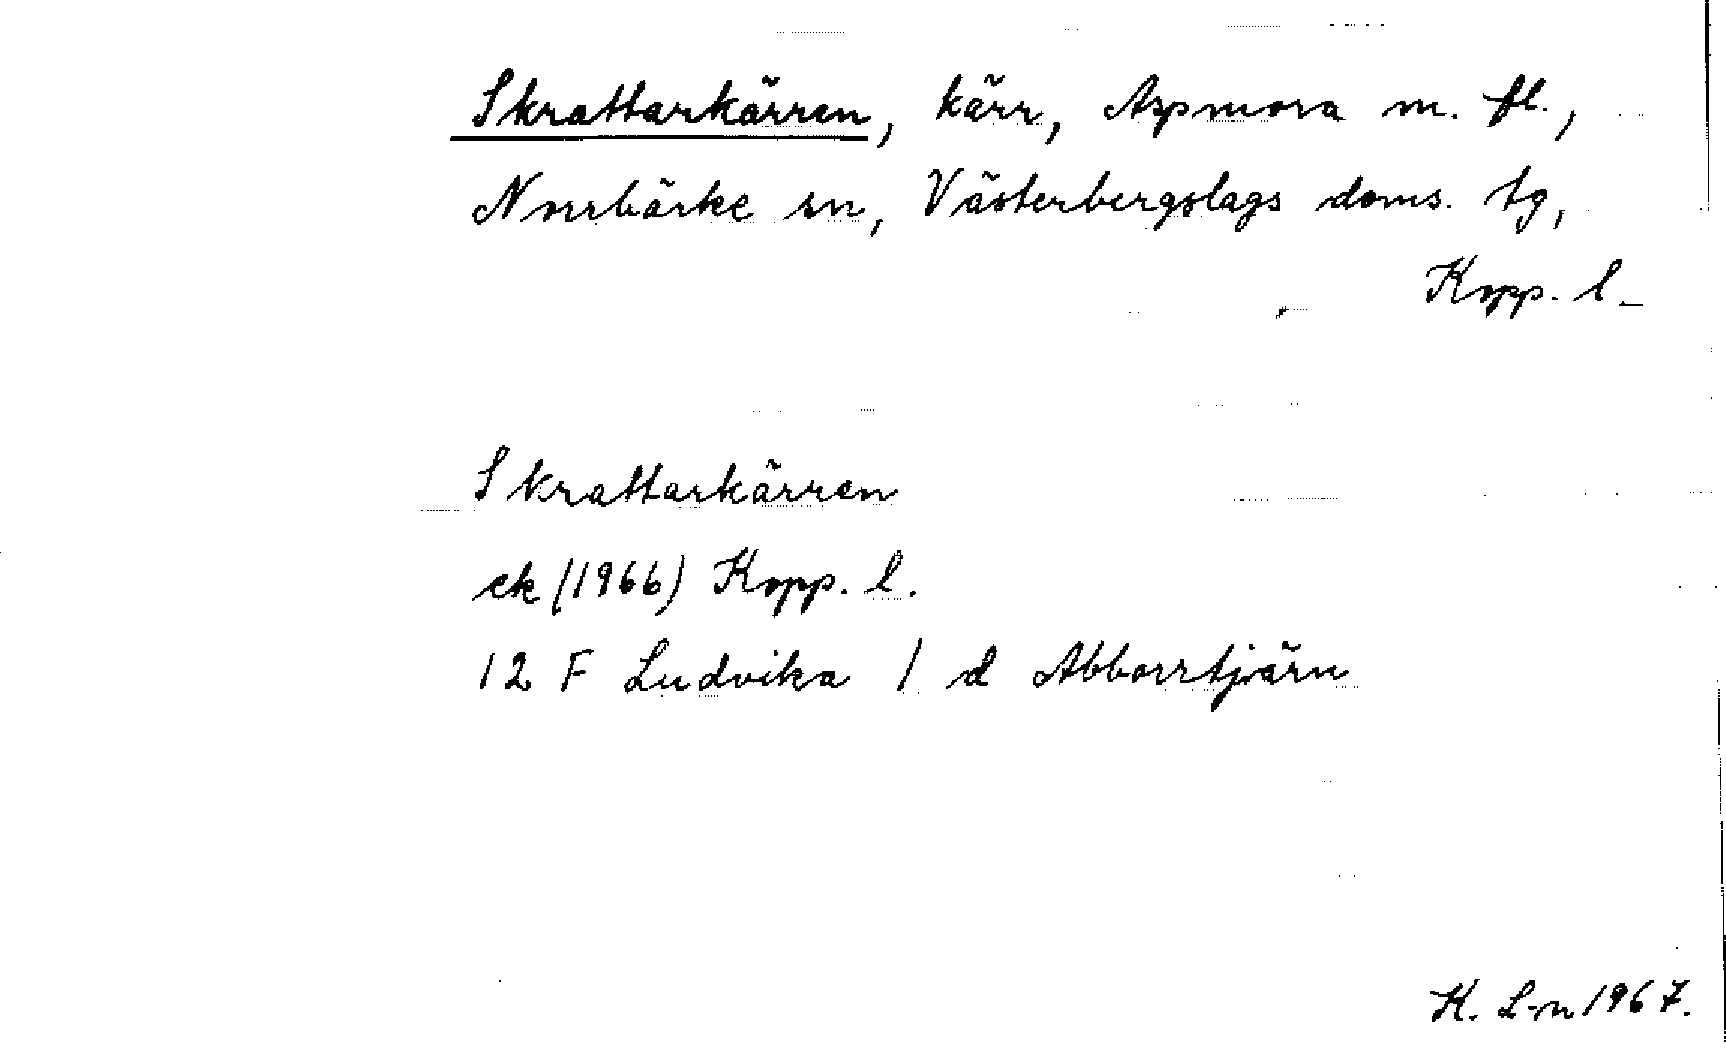 Skrattarkärren, kärr, Aspmora m. fl.,
Norrbärke sn, Västerbergslags doms. tg,
Kopp. l.
Skrattarkärren
ek (1966) Kopp. l.
12 F Ludvika 1 d Abborrtjärn
K. L-n 1967.